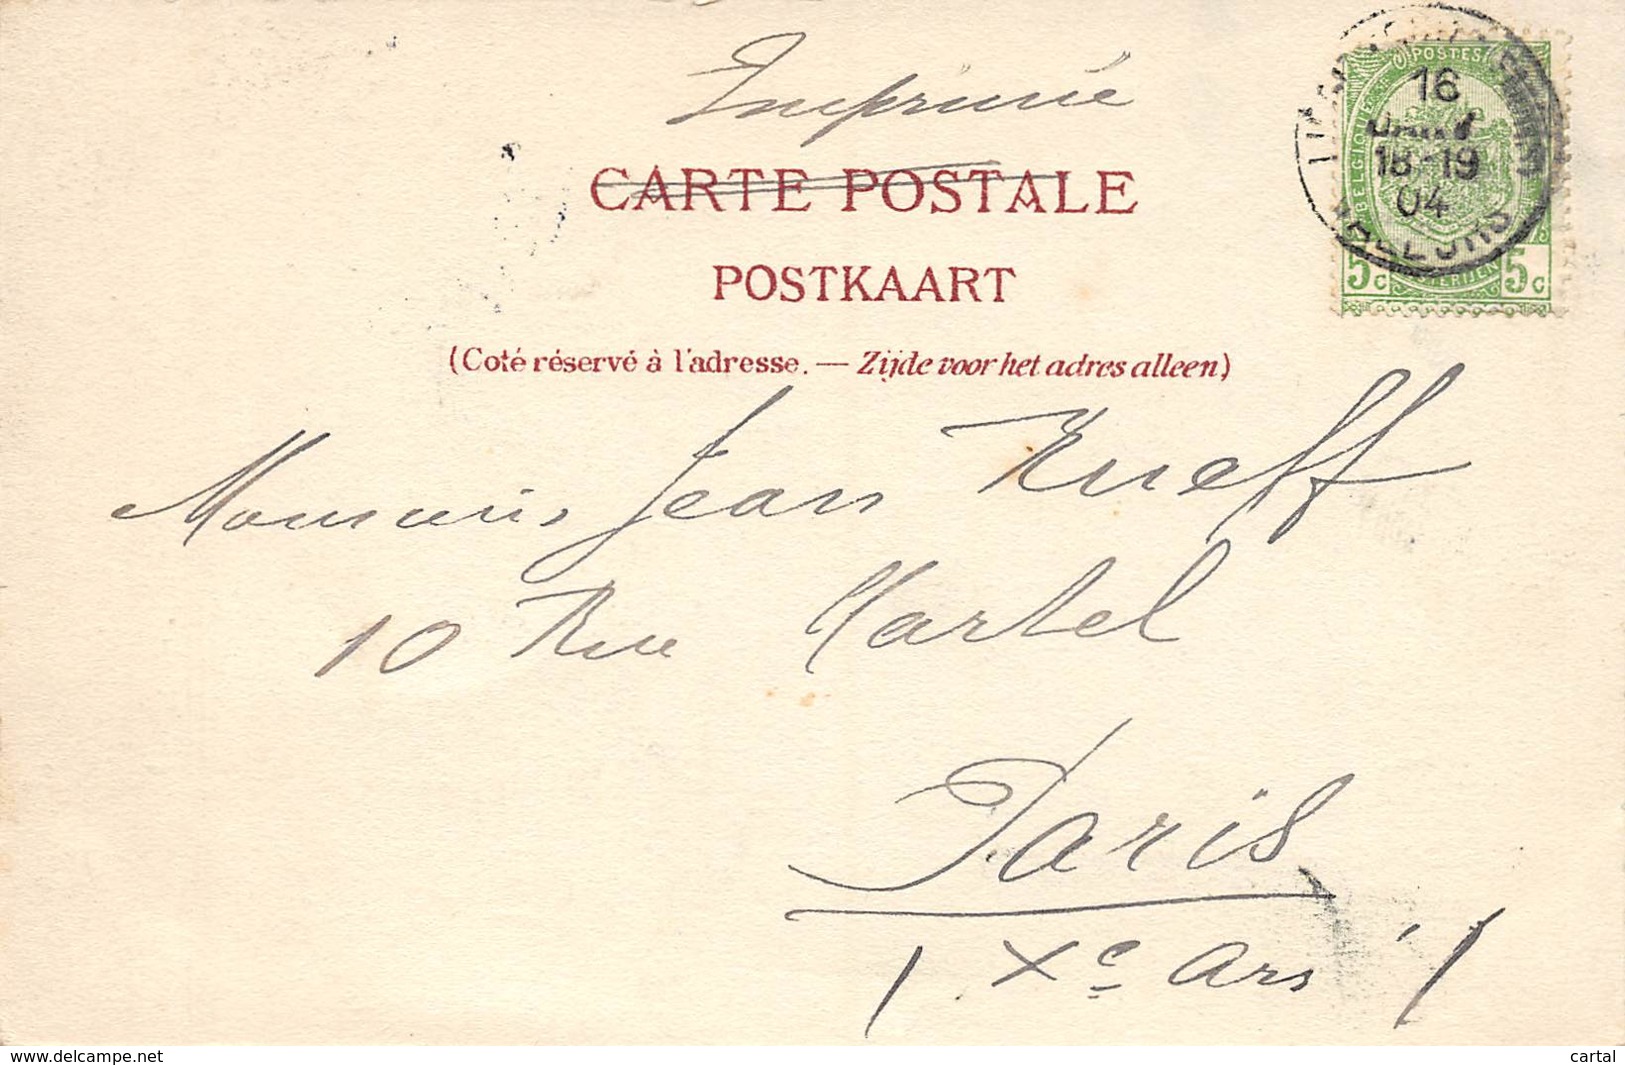 Imprimé
CARTE POSTALE
POSTKAART
(Coté réservé à l'adresse. — Zijde voor het adres alleen)
POSTES
BELGIQUE
5c 5c
16
JANV
18-19
04
Monsieur Jean Rueff
10 Rue Martel
Paris
(Xe Arr)
www.delcampe.net
cartal